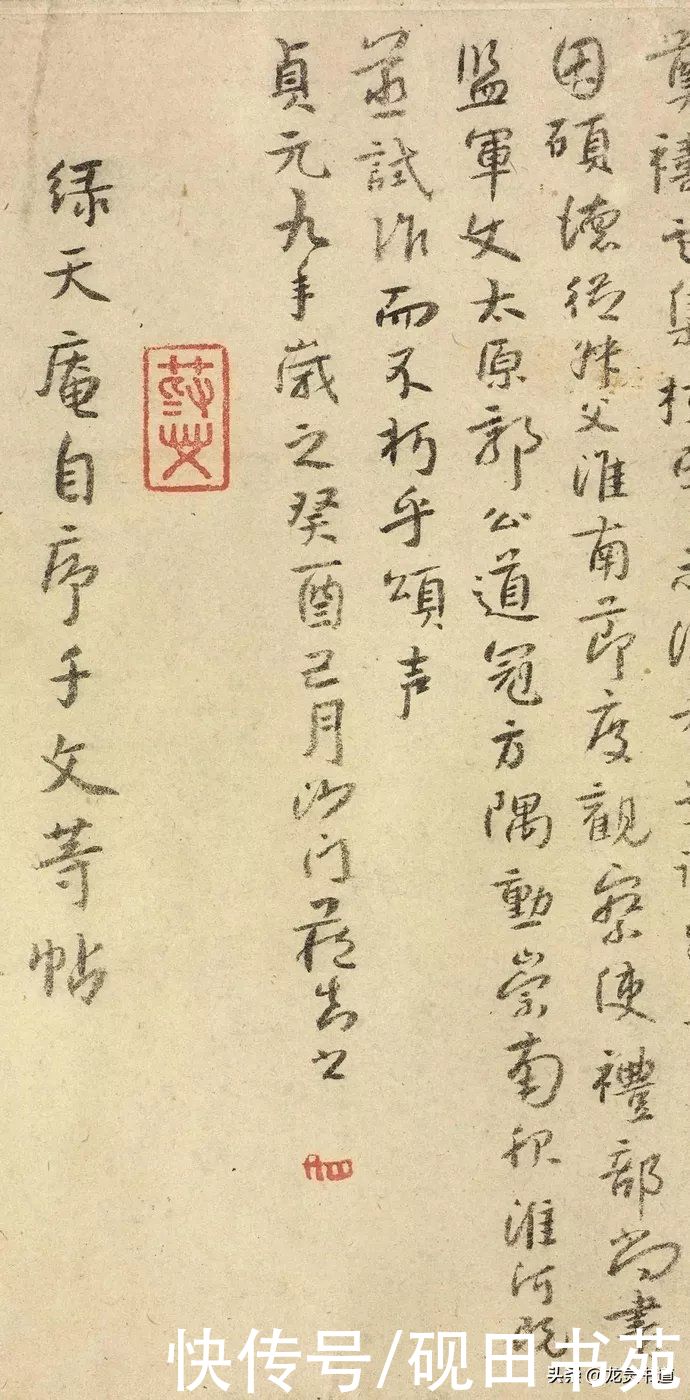 集
因碩德從叔父淮南節度觀察使禮部尚書
監軍使太原郭公道冠方隅勳崇南服淮河既
蒸試作而不朽乎頌声
貞元九年歲之癸酉己月沙门藏真书
绿天庵自序千文等帖
快传号/砚田书苑
头条 @龙书道